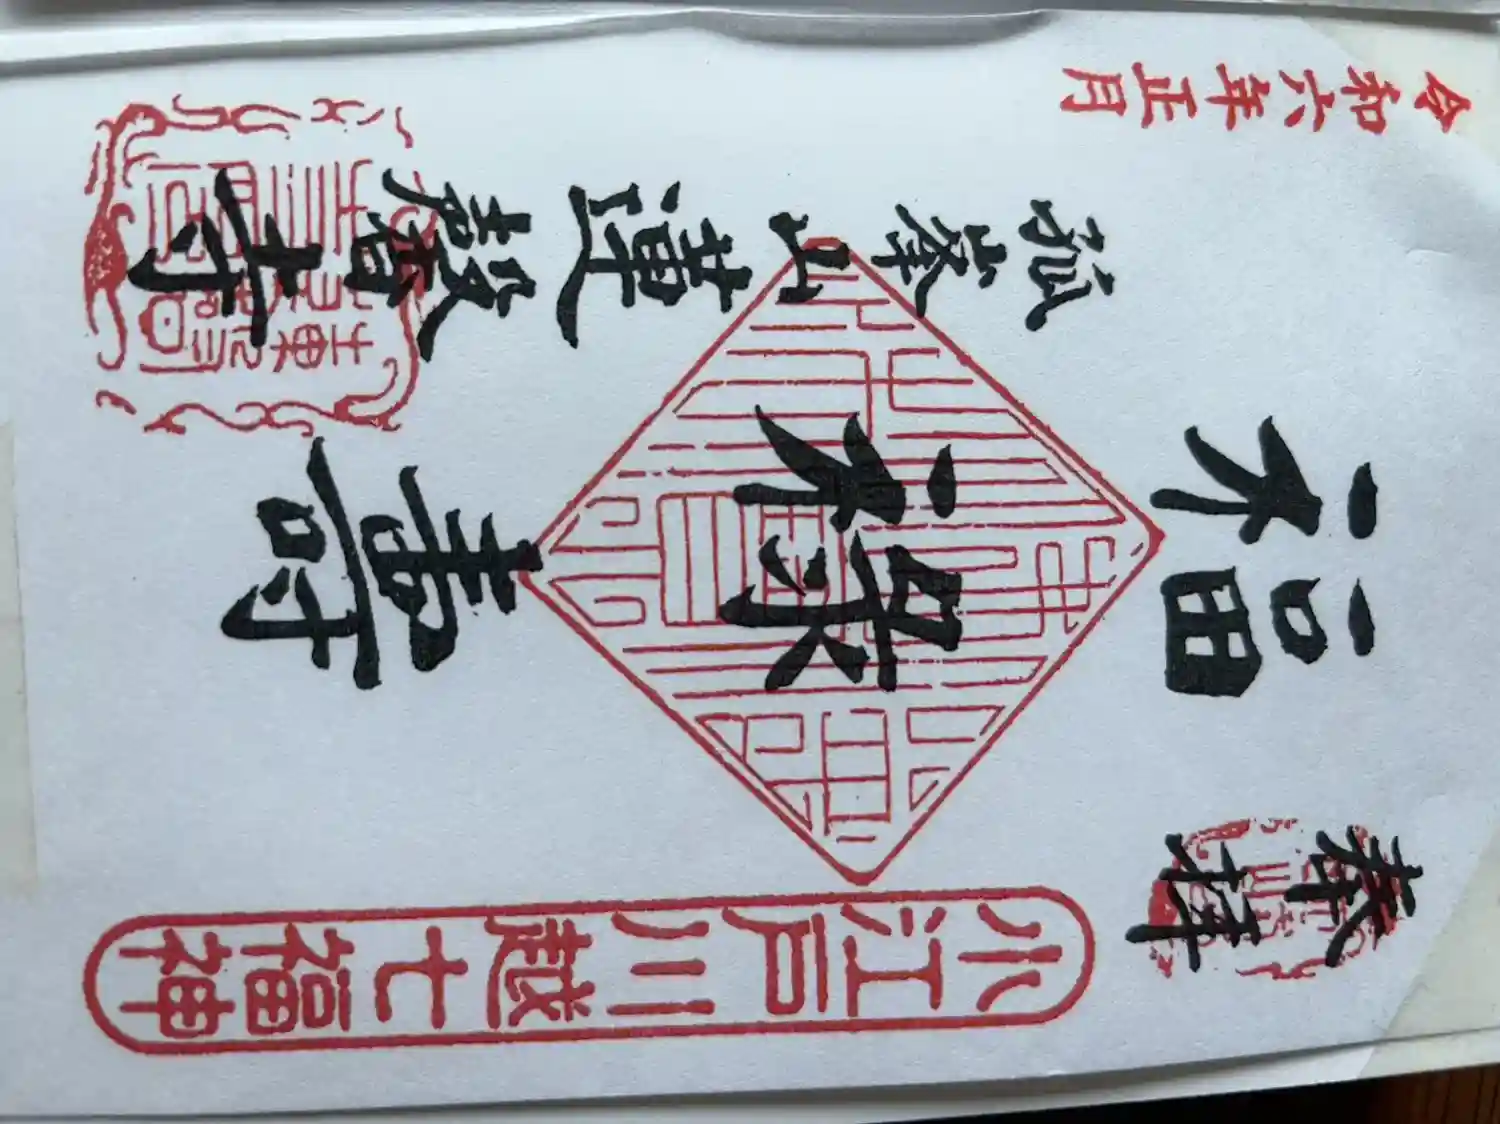 奉拝
小江戸川越七福神
福
祿
壽
孤峯山
蓮馨寺
令和六年正月